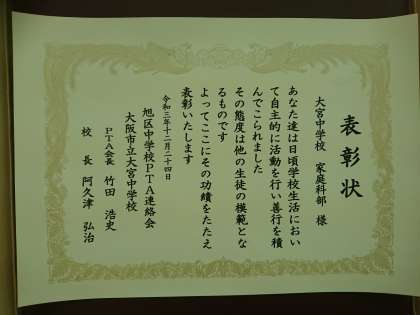 表彰状
大宮中学校 家庭科部 様
あなた達は日頃学校生活におい
て自主的に活動を行い善行を積
んでこられました
その態度は他の生徒の模範とな
るものです
よってここにその功績をたたえ
表彰いたします
令和三年十二月二十四日
旭区中学校PTA連絡会
大阪市立大宮中学校
PTA会長 竹田 浩史
校長 阿久津 弘治